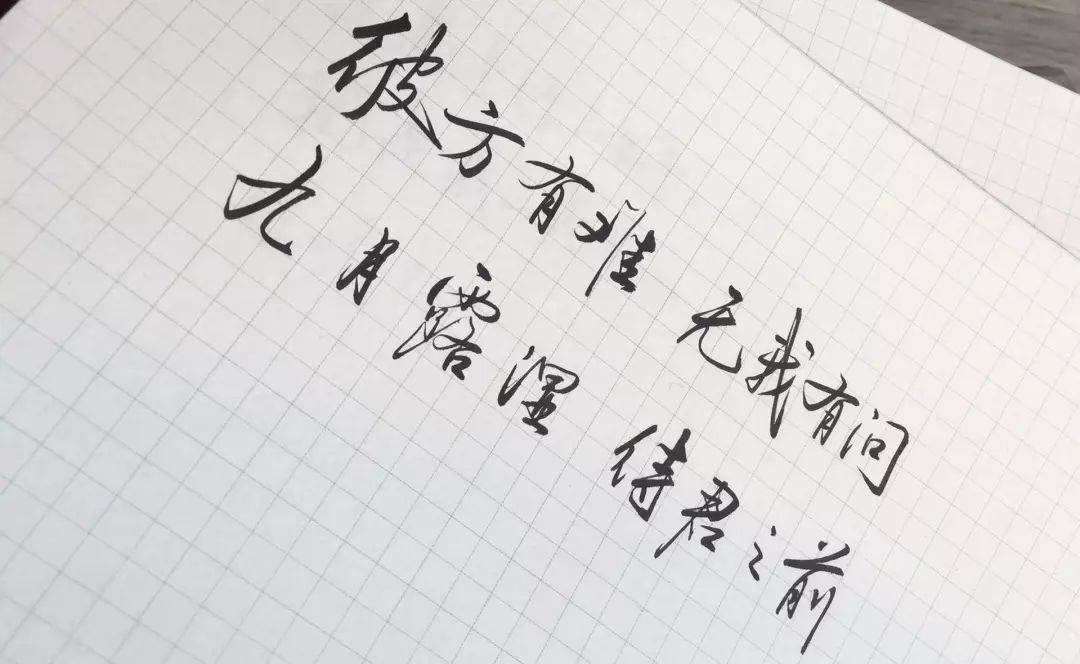 彼方有难 无我有问
九月露湿 待君之前